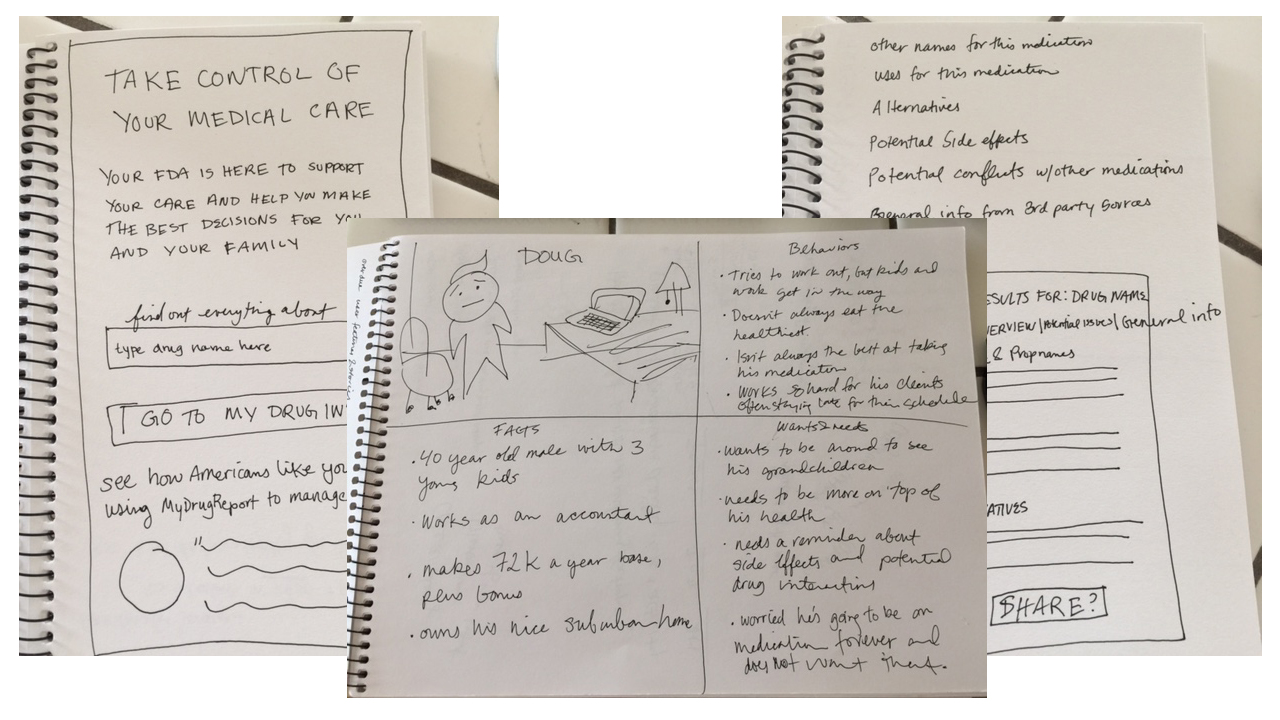 TAKE CONTROL OF
YOUR MEDICAL CARE
YOUR FDA IS HERE TO SUPPORT
YOUR CARE AND HELP YOU MAKE
THE BEST DECISIONS FOR YOU
AND YOUR FAMILY
find out everything about
type drug name here
GO TO MY DRUG IN
see how Americans like you
using MyDrugReport to manage
DOUG
FACTS
· 40 year old male with 3
young kids
· Works as an accountant
· makes 72k a year base,
plus bonus
· owns his nice suburban home
Behaviors
· Tries to work out, but kids and
work get in the way
· Doesn't always eat the
healthiest
· Isn't always the best at taking
his medication
· Works so hard for his clients
often staying late for their schedule
Wants & needs
· wants to be around to see
his grandchildren
· needs to be more on top of
his health
· needs a reminder about
side effects and potential
drug interactions
· worried he's going to be on
medication forever and
does not want that.
other names for this medication
uses for this medication
Alternatives
Potential Side effects
Potential conflicts w/other medications
general info from 3rd party sources
ESULTS FOR: DRUG NAME
ERVIEW/Potential issues/General info
& Propnames
ATIVES
SHARE?